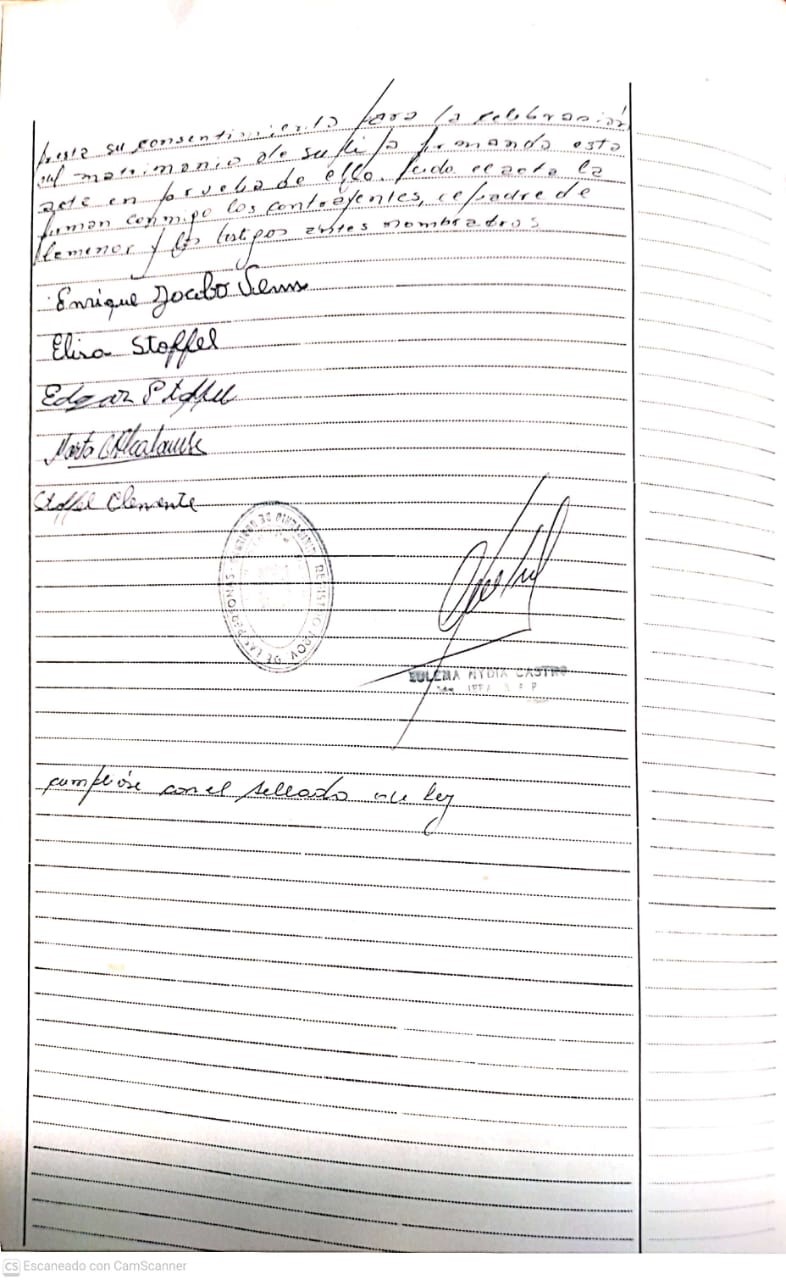 presta su consentimiento para la celebración
del matrimonio de su hija firmando esta
acta en prueba de ello. Leido el acta la
firman conmigo los contrayentes, el padre de
la menor y los testigos antes nombrados
Enrique Jocobo
Elisa Stoffel
Edgar Stoffel
Marta
Stoffel Clemente
DE LAS PERSONAS
EULEMA NYDIA CASTRO
cumplióse con el sellado de ley
CS Escaneado con CamScanner